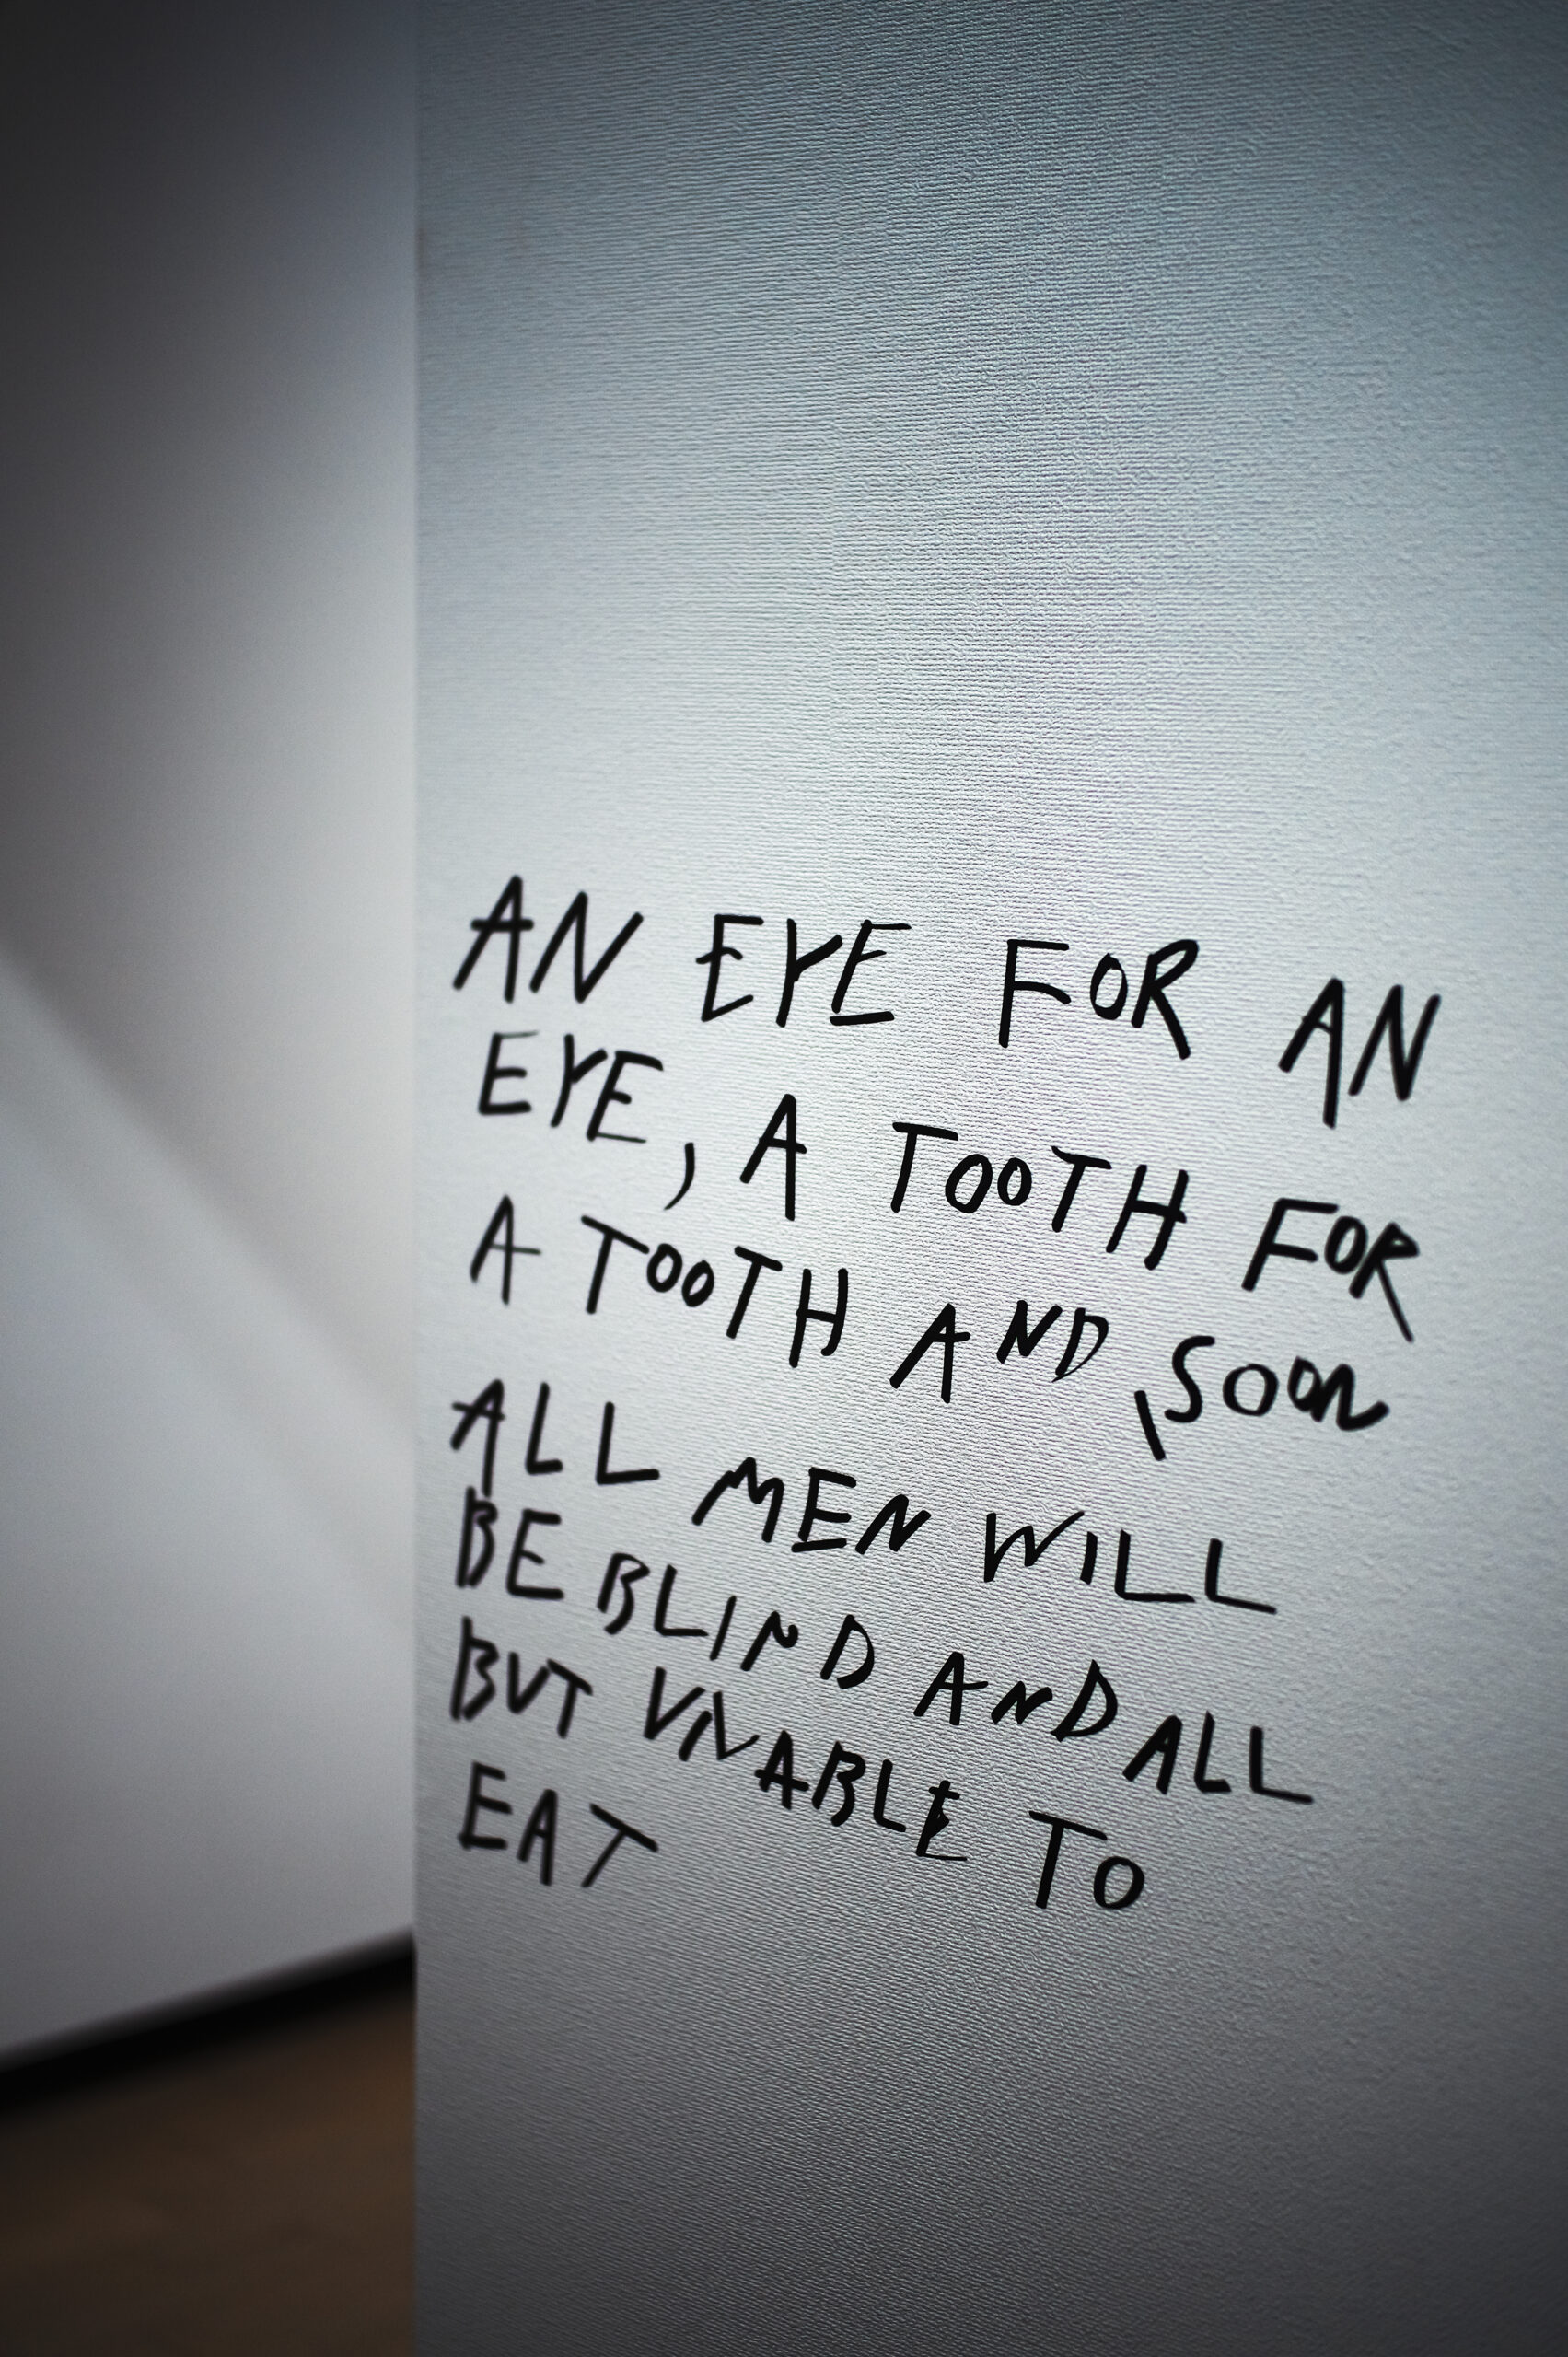 AN EYE FOR AN
EYE, A TOOTH FOR
A TOOTH AND SOON
ALL MEN WILL
BE BLIND AND ALL
BUT VNABLE TO
EAT